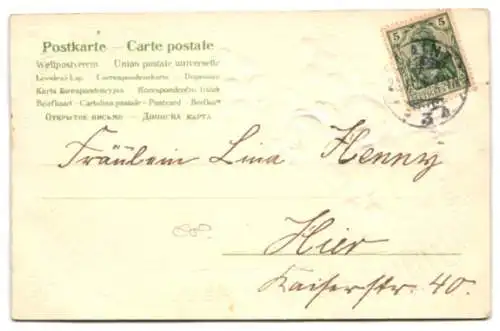 Postkarte — Carte postale
Weltpostverein Union postale universelle
Levelező-Lap. Correspondenzkarte. Dopisnice
Karta korespondencyjna Korespondenční lístek
Brefkaart - Cartolina postale - Postcard - Brefkort
Открытое письмо — Дописна карта
5 5
Fräulein Lina Henny
Hier
Kaiserstr. 40.